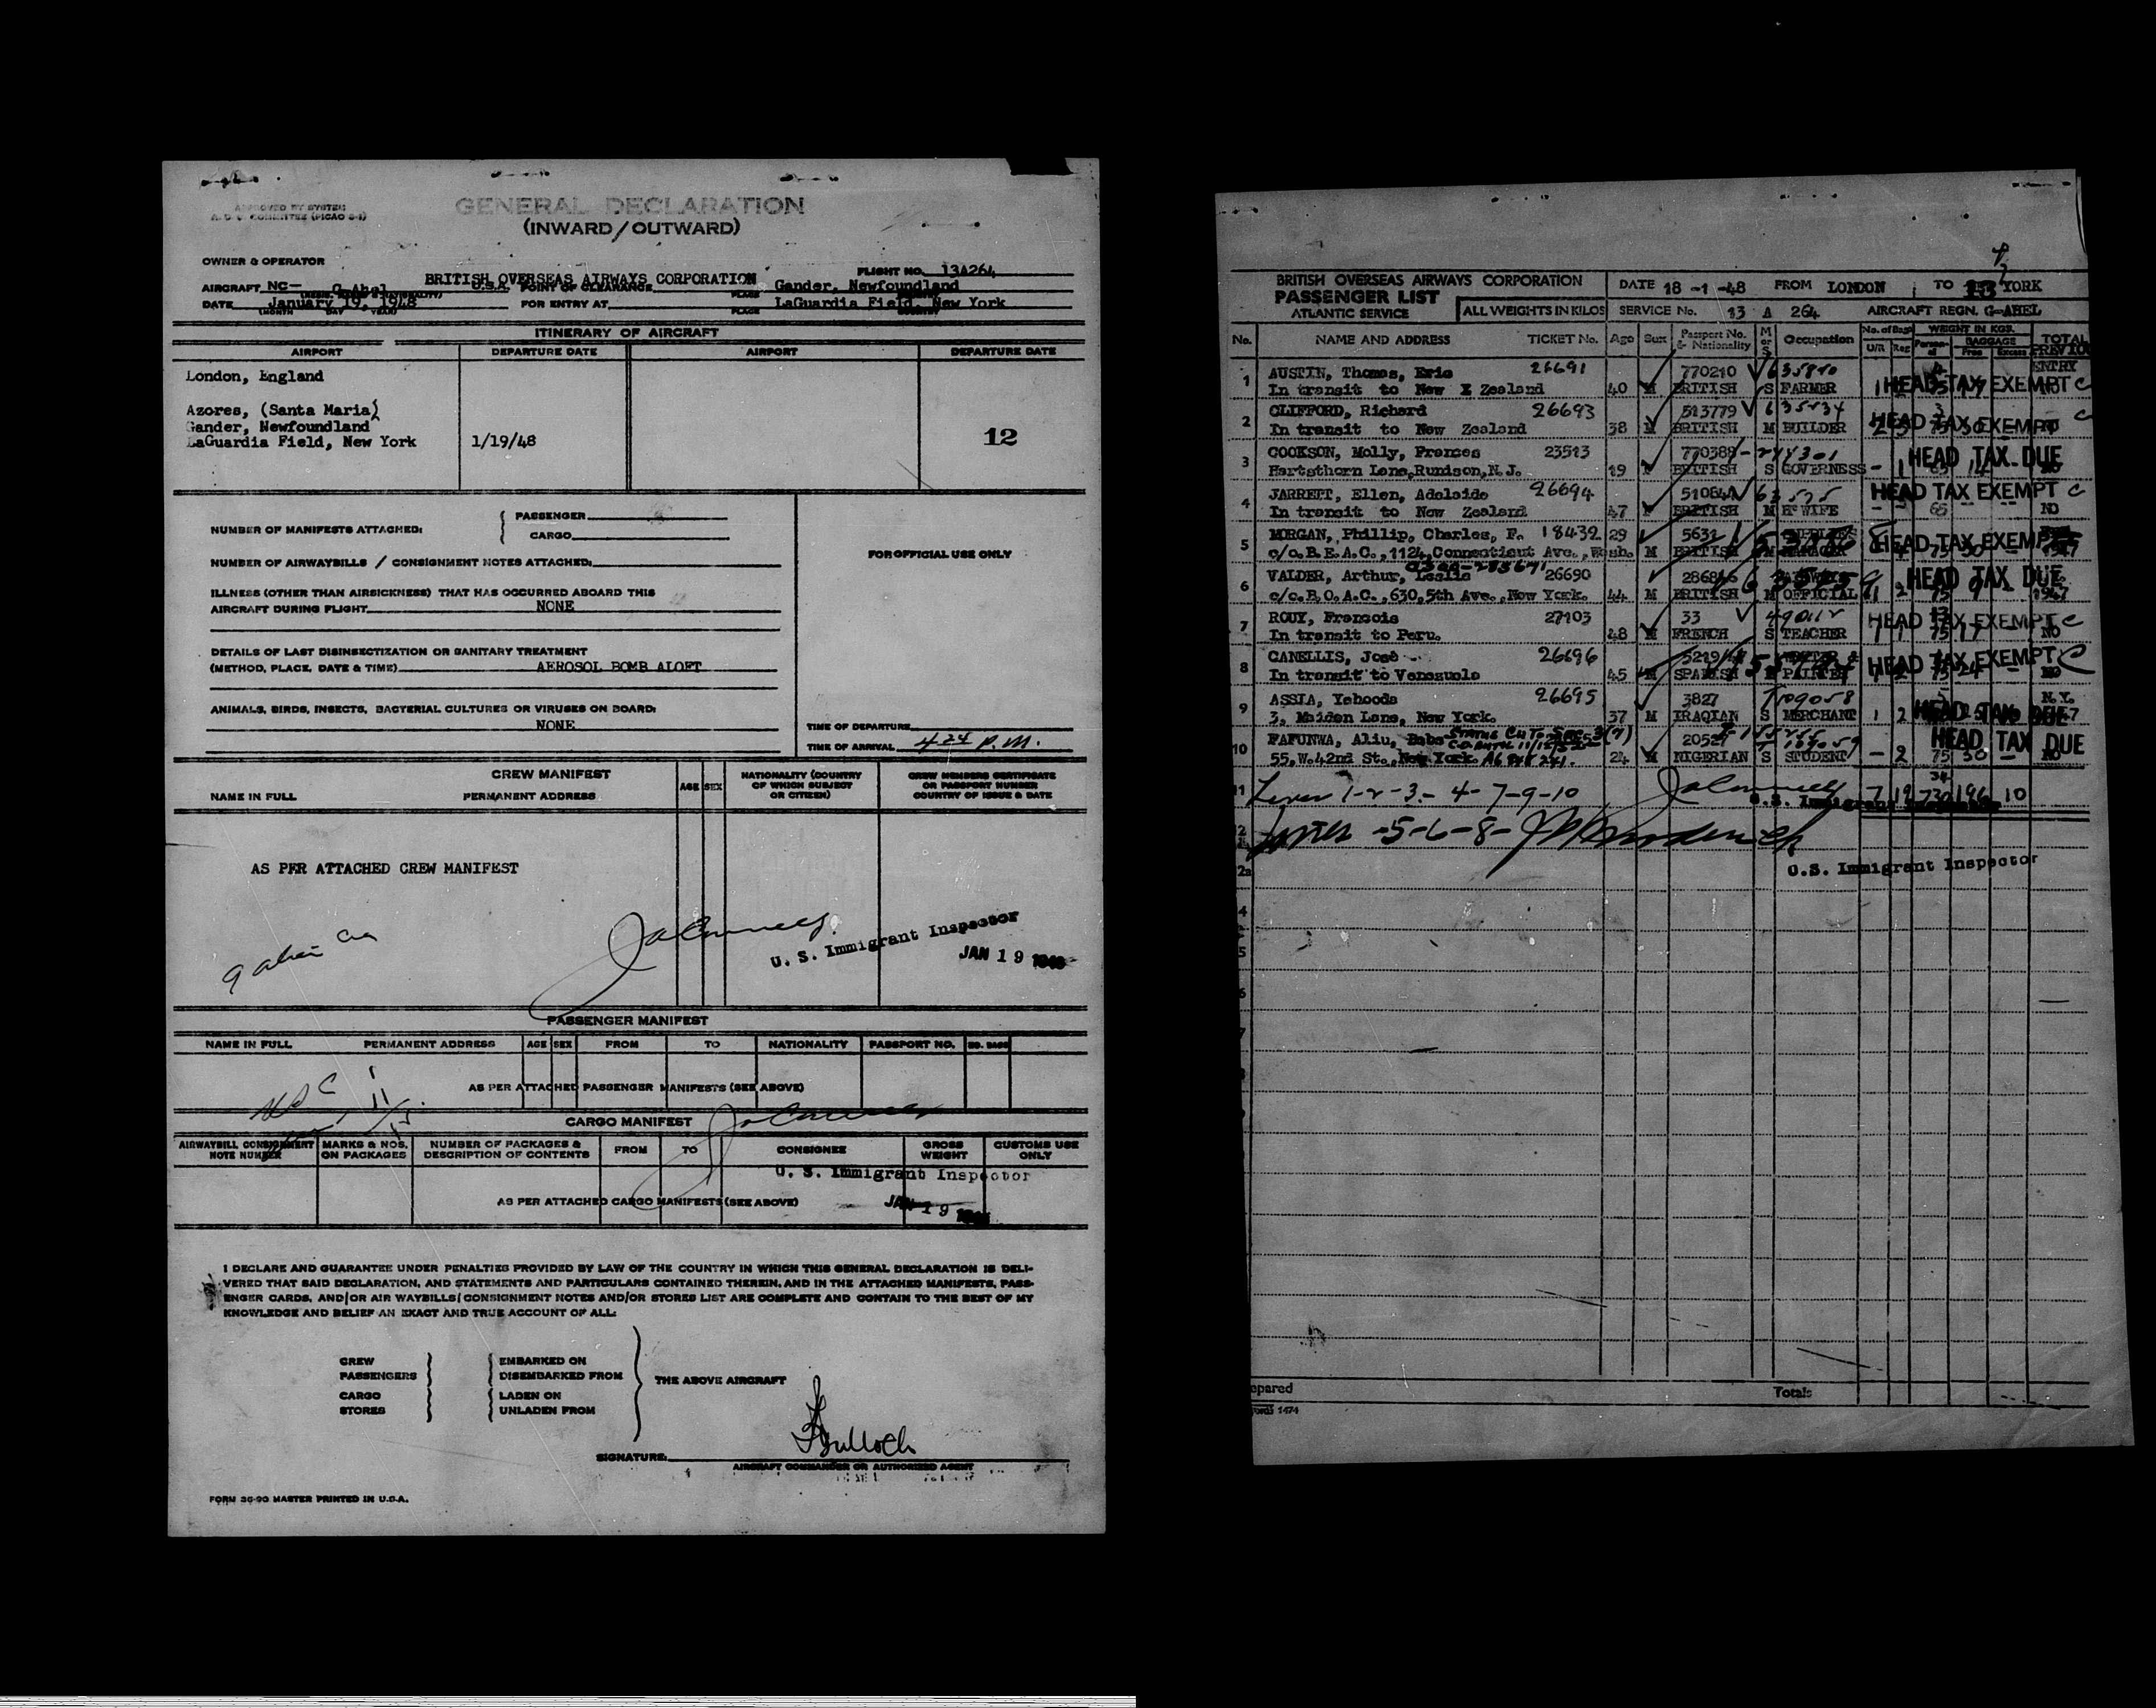 APPROVED BY SYSTEM
GENERAL DECLARATION
(INWARD/OUTWARD)
OWNER & OPERATOR
BRITISH OVERSEAS AIRWAYS CORPORATION
FLIGHT NO. 13A264
AIRCRAFT NC- G-Ahel U.S.A. POINT OF CLEARANCE Gander, Newfoundland
DATE January 19, 1948 FOR ENTRY AT LaGuardia Field, New York
(MONTH DAY YEAR) PLACE
ITINERARY OF AIRCRAFT
AIRPORT DEPARTURE DATE AIRPORT DEPARTURE DATE
London, England
Azores, (Santa Maria)
Gander, Newfoundland
LaGuardia Field, New York 1/19/48 12
NUMBER OF MANIFESTS ATTACHED: PASSENGER
CARGO
FOR OFFICIAL USE ONLY
NUMBER OF AIRWAYBILLS / CONSIGNMENT NOTES ATTACHED:
ILLNESS (OTHER THAN AIRSICKNESS) THAT HAS OCCURRED ABOARD THIS
AIRCRAFT DURING FLIGHT NONE
DETAILS OF LAST DISINSECTIZATION OR SANITARY TREATMENT
(METHOD, PLACE, DATE & TIME) AEROSOL BOMB ALOFT
ANIMALS, BIRDS, INSECTS, BACTERIAL CULTURES OR VIRUSES ON BOARD:
NONE
TIME OF DEPARTURE
TIME OF ARRIVAL 4:24 P.M.
CREW MANIFEST
NAME IN FULL PERMANENT ADDRESS AGE SEX NATIONALITY (COUNTRY OF WHICH SUBJECT OR CITIZEN) CREW MEMBERS CERTIFICATE OR PASSPORT NUMBER COUNTRY OF ISSUE & DATE
AS PER ATTACHED CREW MANIFEST
U. S. Immigrant Inspector
JAN 19 1948
PASSENGER MANIFEST
NAME IN FULL PERMANENT ADDRESS AGE SEX FROM TO NATIONALITY PASSPORT NO. NO. BAGS
AS PER ATTACHED PASSENGER MANIFESTS (SEE ABOVE)
CARGO MANIFEST
AIRWAYBILL CONSIGNMENT NOTE NUMBER MARKS & NOS. ON PACKAGES NUMBER OF PACKAGES & DESCRIPTION OF CONTENTS FROM TO CONSIGNEE GROSS WEIGHT CUSTOMS USE ONLY
U. S. Immigrant Inspector
AS PER ATTACHED CARGO MANIFESTS (SEE ABOVE)
JAN 19
I DECLARE AND GUARANTEE UNDER PENALTIES PROVIDED BY LAW OF THE COUNTRY IN WHICH THIS GENERAL DECLARATION IS DELI-
VERED THAT SAID DECLARATION, AND STATEMENTS AND PARTICULARS CONTAINED THEREIN, AND IN THE ATTACHED MANIFESTS, PASS-
ENGER CARDS, AND/OR AIR WAYBILLS/CONSIGNMENT NOTES AND/OR STORES LIST ARE COMPLETE AND CONTAIN TO THE BEST OF MY
KNOWLEDGE AND BELIEF AN EXACT AND TRUE ACCOUNT OF ALL:
CREW EMBARKED ON
PASSENGERS DISEMBARKED FROM
THE ABOVE AIRCRAFT
CARGO LADEN ON
STORES UNLADEN FROM
SIGNATURE:
AIRCRAFT COMMANDER OR AUTHORIZED AGENT
FORM 36-90 MASTER PRINTED IN U.S.A.
BRITISH OVERSEAS AIRWAYS CORPORATION DATE 18 -1 -48 FROM LONDON TO YORK
PASSENGER LIST
ATLANTIC SERVICE ALL WEIGHTS IN KILOS SERVICE No. 13 A 264 AIRCRAFT REGN. G-AHEL
No. NAME AND ADDRESS TICKET No. Age Sex Passport No. & Nationality M or S Occupation No. of Bags WEIGHT IN KGS. TOTAL
U/R Reg Personal BAGGAGE Free Excess PREVIOUS ENTRY
1 AUSTIN, Thomas, Eric 26691 770210
In transit to New Z Zealand 40 M BRITISH S FARMER HEAD TAX EXEMPT C
2 CLIFFORD, Richard 26693 513779
In transit to New Zealand 38 M BRITISH M BUILDER HEAD TAX EXEMPT C
3 COOKSON, Molly, Frances 23513 770388
Hartsthorn Lane, Rumison, N.J. 19 BRITISH S GOVERNESS - 1 HEAD TAX DUE
4 JARRETT, Ellen, Adelaide 26694
In transit to New Zealand 47 BRITISH M H'WIFE - - 65 NO HEAD TAX EXEMPT C
5 MORGAN, Phillip, Charles, F. 18432 29
c/o. B.E.A.C., 1124, Connecticut Ave., Wash. M BRITISH M MANAGER HEAD TAX EXEMPT
6 VALDER, Arthur, Leslie 26690
c/o. B.O.A.C., 630, 5th Ave., New York. 44 M BRITISH M OFFICIAL 1 2 75 9 - 1947 HEAD TAX DUE
7 ROUY, Francois 27103 33
In transit to Peru. 48 M FRENCH S TEACHER 1 1 75 17 NO HEAD TAX EXEMPT C
8 CANELLIS, José 26696
In transit to Venezuela 45 M SPANISH PAINTER HEAD TAX EXEMPT C
9 ASSIA, Yehooda 26695 3827 N.Y.
3, Maiden Lane, New York. 37 M IRAQIAN S MERCHANT 1 2 HEAD TAX DUE
10 FAFUNWA, Aliu, Babs 20527
55, W. 42nd St., New York. 24 M NIGERIAN S STUDENT - 2 75 30 - NO HEAD TAX DUE
11 1-2-3-4-7-9-10 7 19 730 196 10
U.S. Immigrant Inspector
-5-6-8-
U.S. Immigrant Inspector
Totals